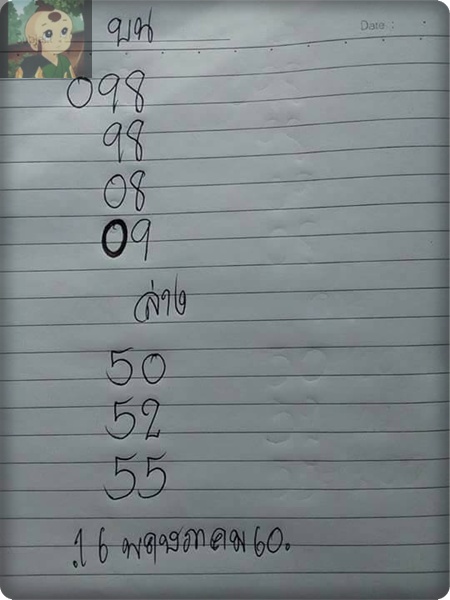 Date :
บน
098
98
08
09
ล่าง
50
52
55
.16 พฤษภาคม 60.